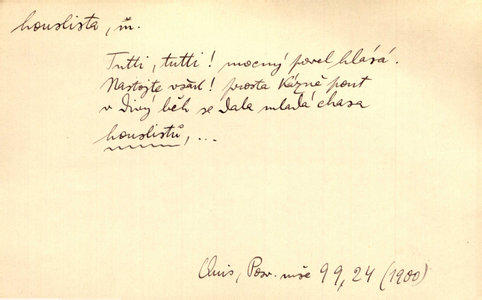 houslista, m.
Tutti, tutti! mocný povel hlásá.
Nastojte však! prosta kázně pout
v divý běh se dala mladá chasa
houslistů, ...
Quis, Posv. mše 99, 24 (1900)